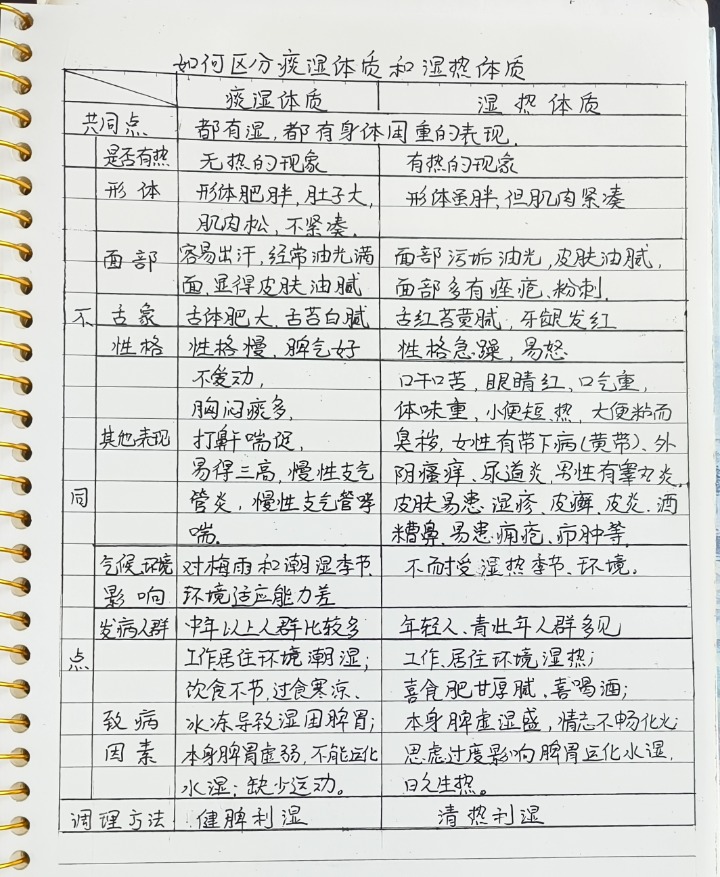 如何区分痰湿体质和湿热体质
痰湿体质 湿热体质
共同点 都有湿,都有身体困重的表现.
是否有热 无热的现象 有热的现象
形体 形体肥胖,肚子大, 形体虽胖,但肌肉紧凑
肌肉松,不紧凑.
面部 容易出汗,经常油光满 面部污垢油光,皮肤油腻,
面,显得皮肤油腻 面部多有痤疮、粉刺.
不 舌象 舌体肥大,舌苔白腻 舌红苔黄腻,牙龈发红
性格 性格慢,脾气好 性格急躁,易怒
不爱动, 口干口苦,眼睛红,口气重,
胸闷痰多, 体味重,小便短、热,大便粘而
其他表现 打鼾喘促, 臭秽,女性有带下病(黄带)、外
易得三高,慢性支气 阴瘙痒、尿道炎,男性有睾丸炎,
同 管炎,慢性支气管哮 皮肤易患湿疹、皮癣、皮炎、酒
喘. 糟鼻、易患痈疮、疖肿等,
气候、环境 对梅雨和潮湿季节、 不耐受湿热季节、环境。
影响 环境适应能力差
发病人群 中年以上人群比较多 年轻人、青壮年人群多见
点 工作居住环境潮湿; 工作、居住环境湿热;
饮食不节,过食寒凉、 喜食肥甘厚腻、喜喝酒;
致病 冰冻导致湿困脾胃; 本身脾虚湿盛,情志不畅化火;
因素 本身脾胃虚弱,不能运化 思虑过度影响脾胃运化水湿,
水湿;缺少运动。 日久生热。
调理方法 健脾利湿 清热利湿